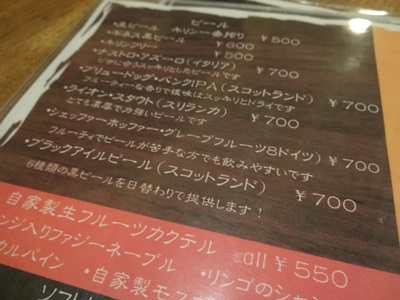 ビール
・黒ビール キリン一番搾り ￥500
・ギネス黒ビール ￥600
・キリンフリー ￥500
・ナストロ・アズーロ(イタリア) ￥700
ピザに合うスッキリとしたビールです
・ブリュードッグ・パンクIPA(スコットランド) ￥700
フルーティーな香りで後味はスッキリとドライです
・ライオン・スタウト(スリランカ) ￥700
とても濃厚で力強いビールです
・シェッファーホッファー・グレープフルーツ8ドイツ) ￥700
フルーティでビールが苦手な方でも飲みやすいです
・ブラックアイルビール(スコットランド) ￥700
6種類の黒ビールを日替わりで提供します!
自家製生フルーツカクテル all￥550
ンジ入りファジーネーブル ・リンゴのシャ
カルパイン ・自家製モス
ソフト